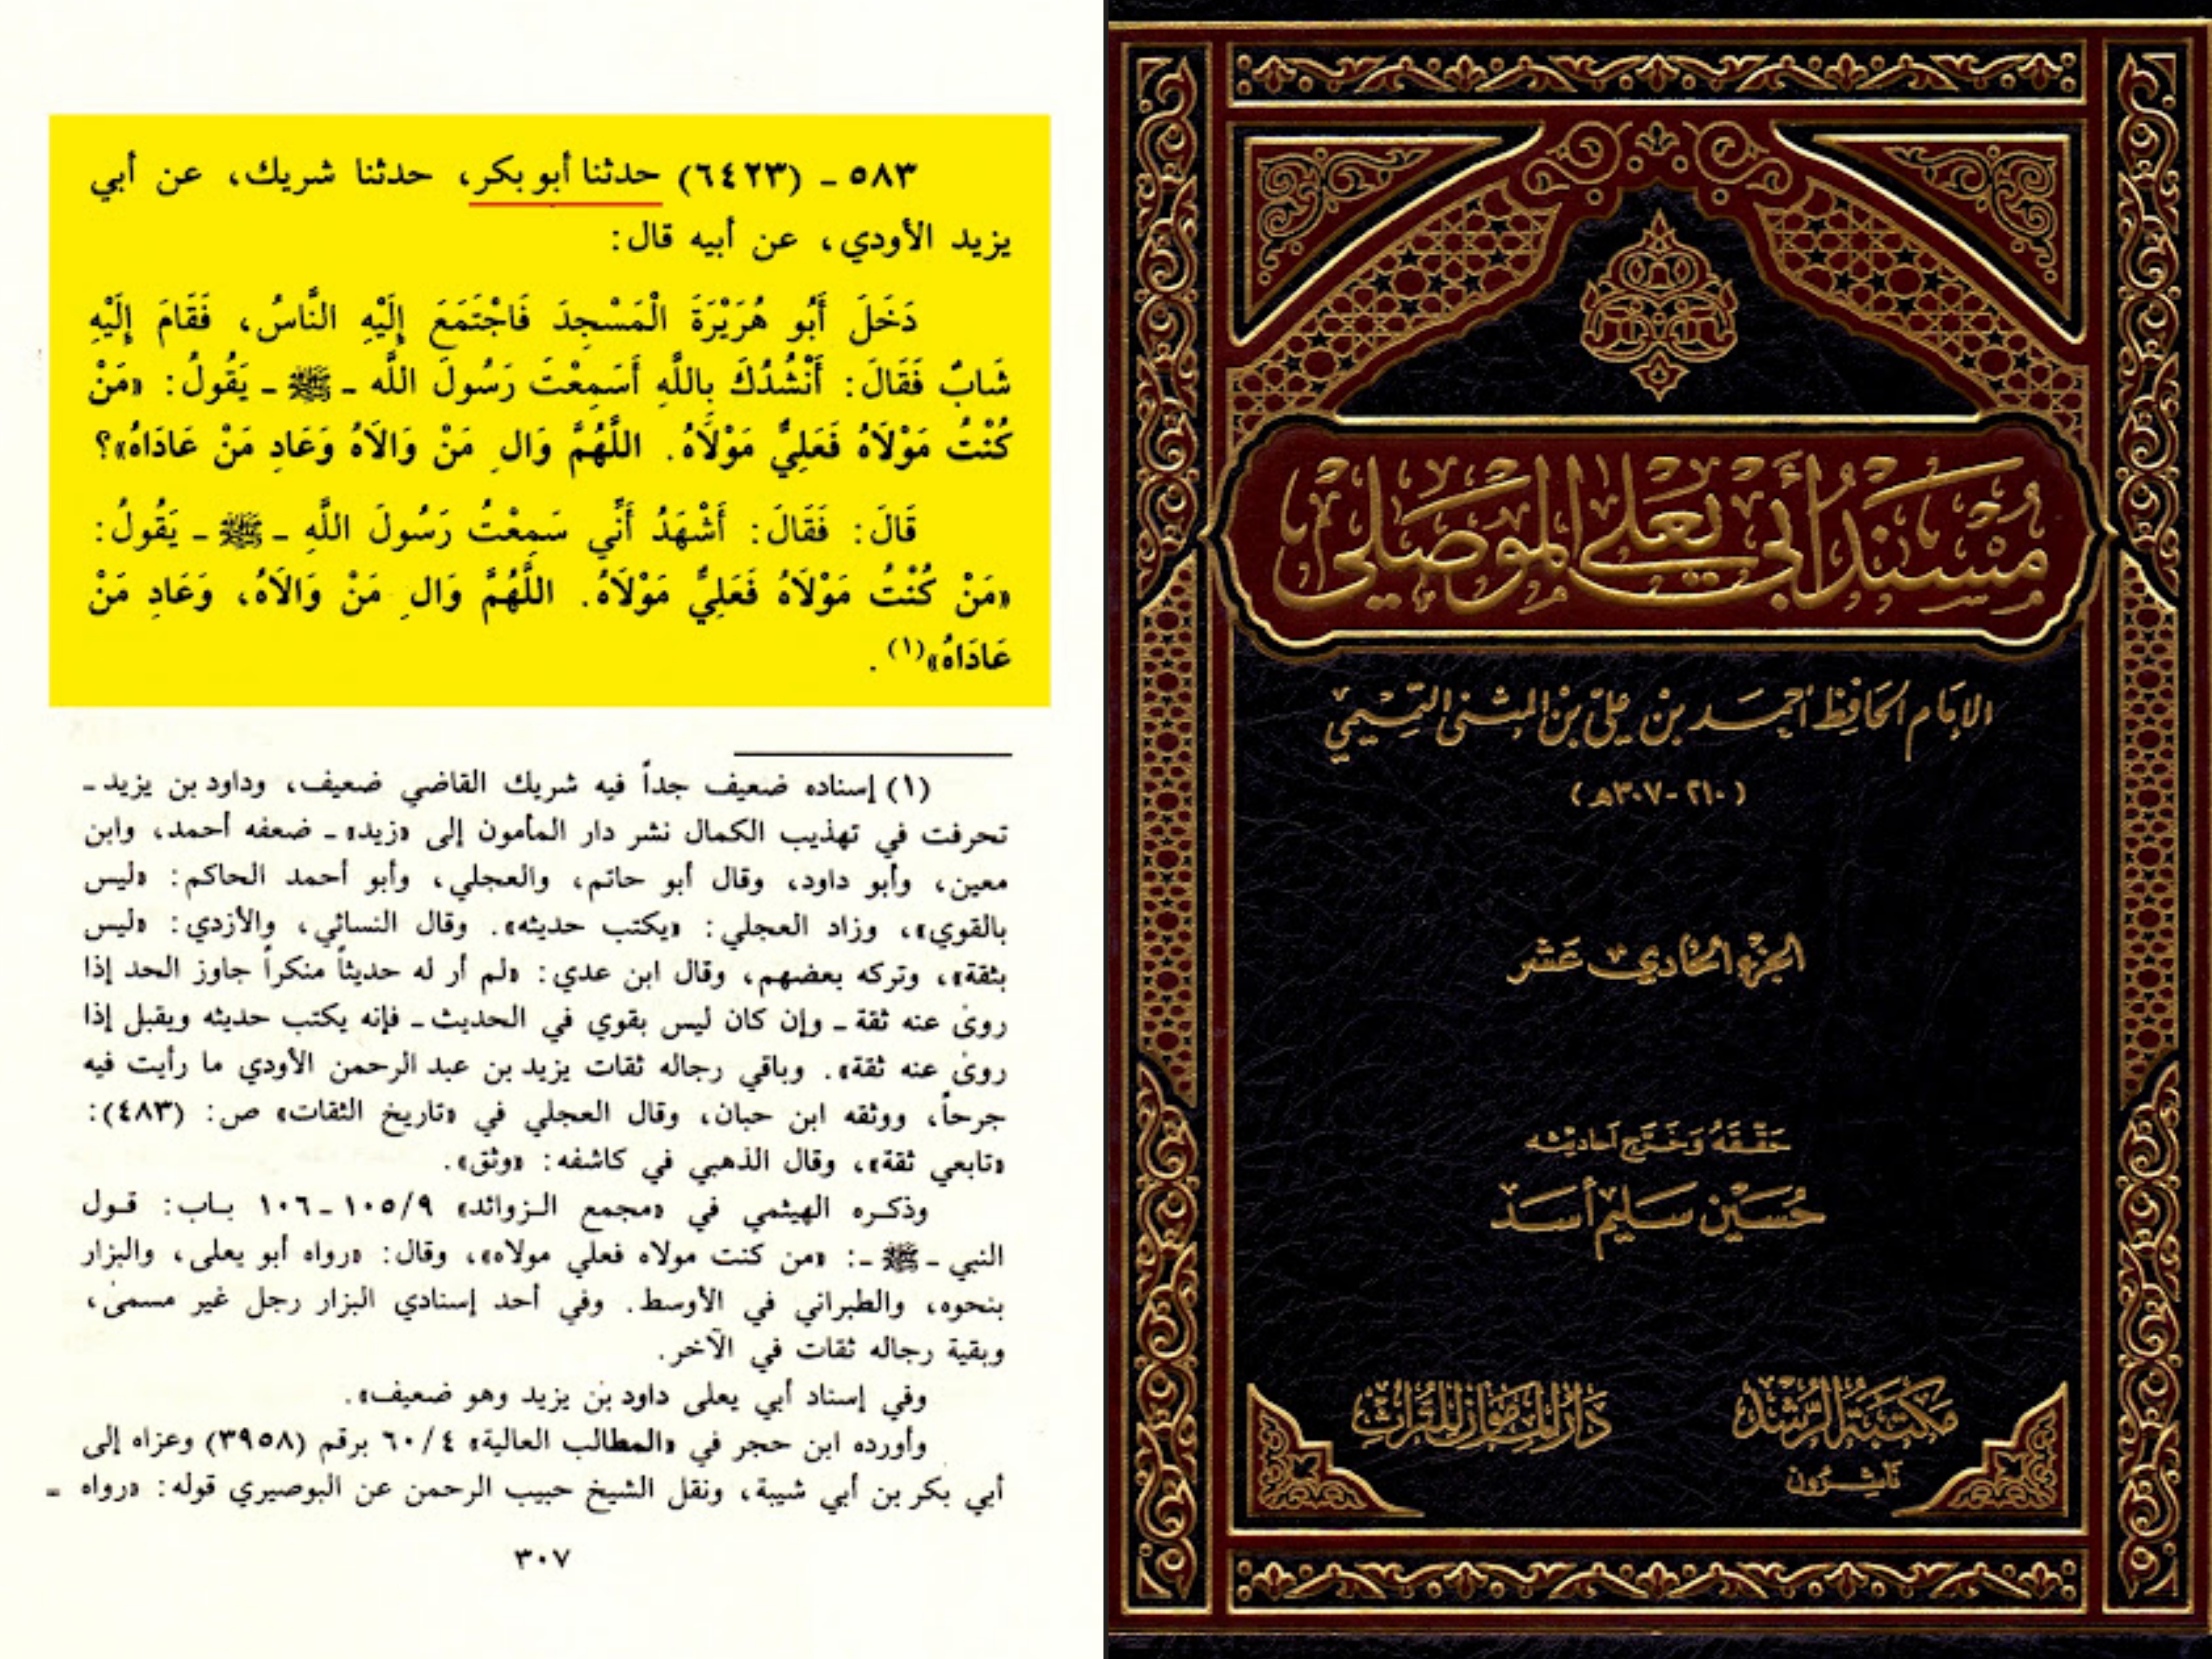 ٥٨٣ - (٦٤٢٣) حدثنا أبو بكر، حدثنا شريك، عن أبي
يزيد الأودي، عن أبيه قال:
دَخَلَ أَبُو هُرَيْرَةَ الْمَسْجِدَ فَاجْتَمَعَ إِلَيْهِ النَّاسُ، فَقَامَ إِلَيْهِ
شَابٌ فَقَالَ: أَنْشُدُكَ بِاللَّهِ أَسَمِعْتَ رَسُولَ اللَّه - ﷺ - يَقُولُ: «مَنْ
كُنْتُ مَوْلَاهُ فَعَلِيٌّ مَوْلَاهُ. اللَّهُمَّ وَالِ مَنْ وَالَاهُ وَعَادِ مَنْ عَادَاهُ»؟
قَالَ: فَقَالَ: أَشْهَدُ أَنِّي سَمِعْتُ رَسُولَ اللَّهِ - ﷺ - يَقُولُ:
«مَنْ كُنْتُ مَوْلَاهُ فَعَلِيٌّ مَوْلَاهُ. اللَّهُمَّ وَالِ مَنْ وَالَاهُ، وَعَادِ مَنْ
عَادَاهُ»(١).
(١) إسناده ضعيف جداً فيه شريك القاضي ضعيف، وداود بن يزيد -
تحرفت في تهذيب الكمال نشر دار المأمون إلى «زيد» - ضعفه أحمد، وابن
معين، وأبو داود، وقال أبو حاتم، والعجلي، وأبو أحمد الحاكم: «ليس
بالقوي»، وزاد العجلي: «يكتب حديثه». وقال النسائي، والأزدي: «ليس
بثقة»، وتركه بعضهم، وقال ابن عدي: «لم أر له حديثاً منكراً جاوز الحد إذا
روى عنه ثقة - وإن كان ليس بقوي في الحديث - فإنه يكتب حديثه ويقبل إذا
روى عنه ثقة». وباقي رجاله ثقات يزيد بن عبد الرحمن الأودي ما رأيت فيه
جرحاً، ووثقه ابن حبان، وقال العجلي في «تاريخ الثقات» ص: (٤٨٣):
«تابعي ثقة»، وقال الذهبي في كاشفه: «وثق».
وذكره الهيثمي في «مجمع الزوائد» ١٠٥/٩ - ١٠٦ باب: قول
النبي - ﷺ -: «من كنت مولاه فعلي مولاه»، وقال: «رواه أبو يعلى، والبزار
بنحوه، والطبراني في الأوسط. وفي أحد إسنادي البزار رجل غير مسمى،
وبقية رجاله ثقات في الآخر.
وفي إسناد أبي يعلى داود بن يزيد وهو ضعيف».
وأورده ابن حجر في «المطالب العالية» ٦٠/٤ برقم (٣٩٥٨) وعزاه إلى
أبي بكر بن أبي شيبة، ونقل الشيخ حبيب الرحمن عن البوصيري قوله: «رواه =
٣٠٧
مُسْنَدُ أَبِي يَعْلَى الْمَوْصِلِي
الإمَام الحَافِظ أحمَد بْن عَليّ بْن المثنى التَّمِيمِي
(٢١٠ - ٣٠٧هـ)
الجزء الحَادي عَشر
حَقّقَهُ وَخَرَّج أحَاديثه
حُسَيْن سَليم أسَد
مكتبة الرُّشد
نَاشِرُون
دَار المأمُون للتُّراث